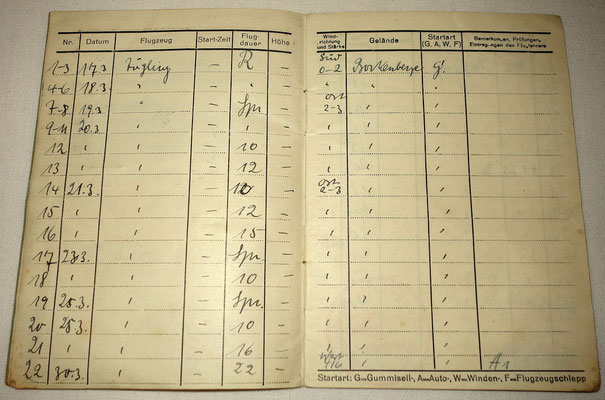 Nr. Datum Flugzeug Start-Zeit Flugdauer Höhe Windrichtung und Stärke Gelände Startart (G. A. W, F) Bemerkungen, Prüfungen, Eintragungen des Fluglehrers
1-3 17.3 Zögling — R — Süd 0-2 Borkenberge G.
4-6 18.3 " — " — " " "
7-8 19.3 " — Spr. — Ost 2-3 " "
9-11 20.3 " — " — " " "
12 " " — 10 — " " "
13 " " — 12 — " " "
14 21.3. " — 10 — Ost 2-3 " "
15 " " — 12 — " " "
16 " " — 15 — " " "
17 23.3. " — Spr. — " " "
18 " " — 10 — " " "
19 25.3. " — Spr. — " " "
20 25.3. " — 10 — " " "
21 " " — 16 — " " "
22 30.3. " — 22 — West " " A1
Startart: G=Gummiseil-, A=Auto-, W=Winden-, F=Flugzeugschlepp